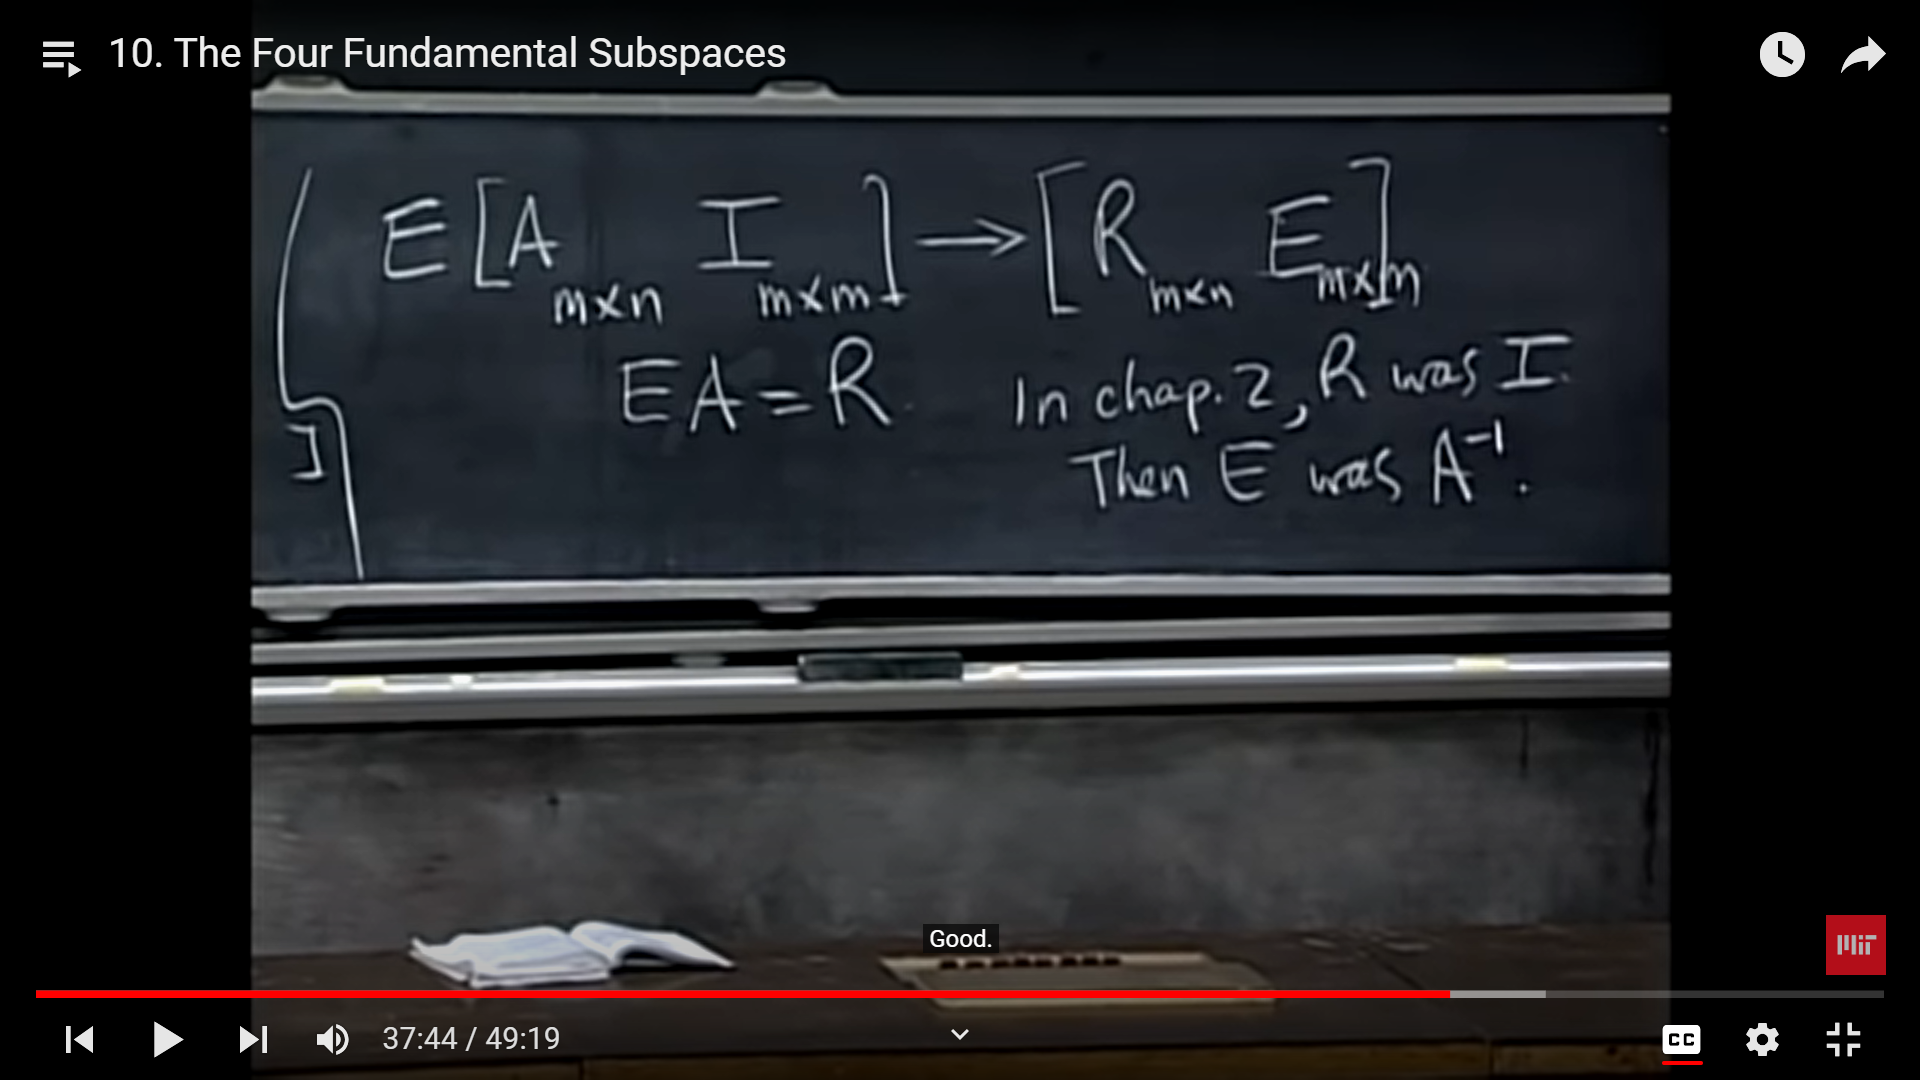 10. The Four Fundamental Subspaces
E [A m×n I m×m] → [R m×n E m×m]
EA = R In chap. 2, R was I.
Then E was A⁻¹.
Good.
MIT
37:44 / 49:19
CC